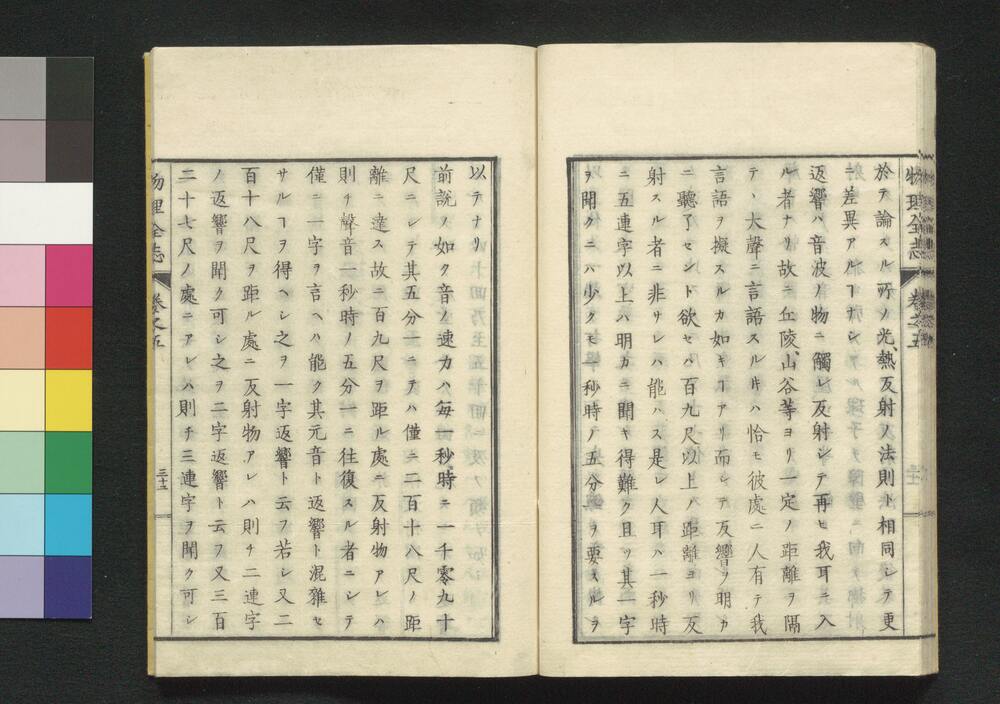 物理全志 卷之五
於テ論スル所ノ光熱反射ノ法則ト相同シテ更
ニ差異アルヿナシ
返響ハ音波ノ物ニ觸レ反射シテ再ヒ我耳ニ入
ル者ナリ故ニ丘陵山谷等ヨリ一定ノ距離ヲ隔
テ、大聲ニ言語スル𪜈ハ恰モ彼處ニ人有テ我
言語ヲ擬スルカ如キヿアリ而シテ反響ヲ明カ
ニ聽了セント欲セハ百九尺以上ノ距離ヨリ反
射スル者ニ非サレハ能ハス是レ人耳ハ一秒時
ニ五連字以上ハ明カニ聞キ得難ク且ツ其一字
ヲ聞クニハ少クモ一秒時ノ五分一ヲ要スルヲ
以テナリ
前說ノ如ク音ノ速力ハ每一秒時ニ一千零九十
尺ニシテ其五分一ニテハ僅ニ二百十八尺ノ距
離ニ達ス故ニ百九尺ヲ距ル處ニ反射物アレハ
則チ聲音一秒時ノ五分一ニ往復スル者ニシテ
僅ニ一字ヲ言ヘハ能ク其元音ト返響ト混雜セ
サルヿヲ得ヘシ之ヲ一字返響ト云フ若シ又二
百十八尺ヲ距ル處ニ反射物アレハ則チ二連字
ノ返響ヲ聞ク可シ之ヲ二字返響ト云フ又三百
二十七尺ノ處ニアレハ則チ三連字ヲ聞ク可シ
物理全志 卷之五